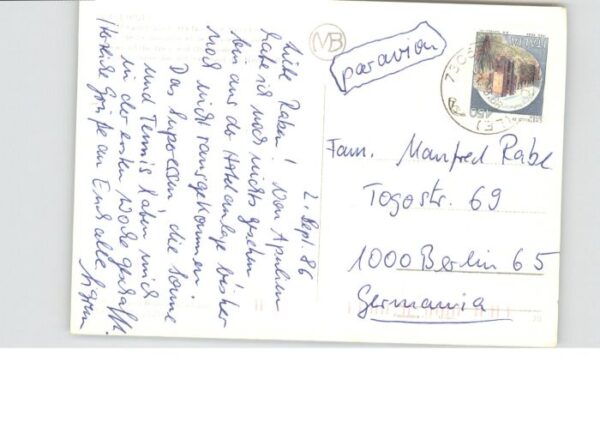 MB
par avion
ITALIA
450
2. Sept. 86
Liebe Raben! Von Apulien
habe ich noch nichts gesehen
bin aus der Hotelanlage bisher
noch nicht rausgekommen.
Das Superessen, die Sonne
und Tennis haben mich
in der ersten Woche geschafft.
Herzliche Grüße an Euch alle
Fam. Manfred Rabe
Togostr. 69
1000 Berlin 65
Germania